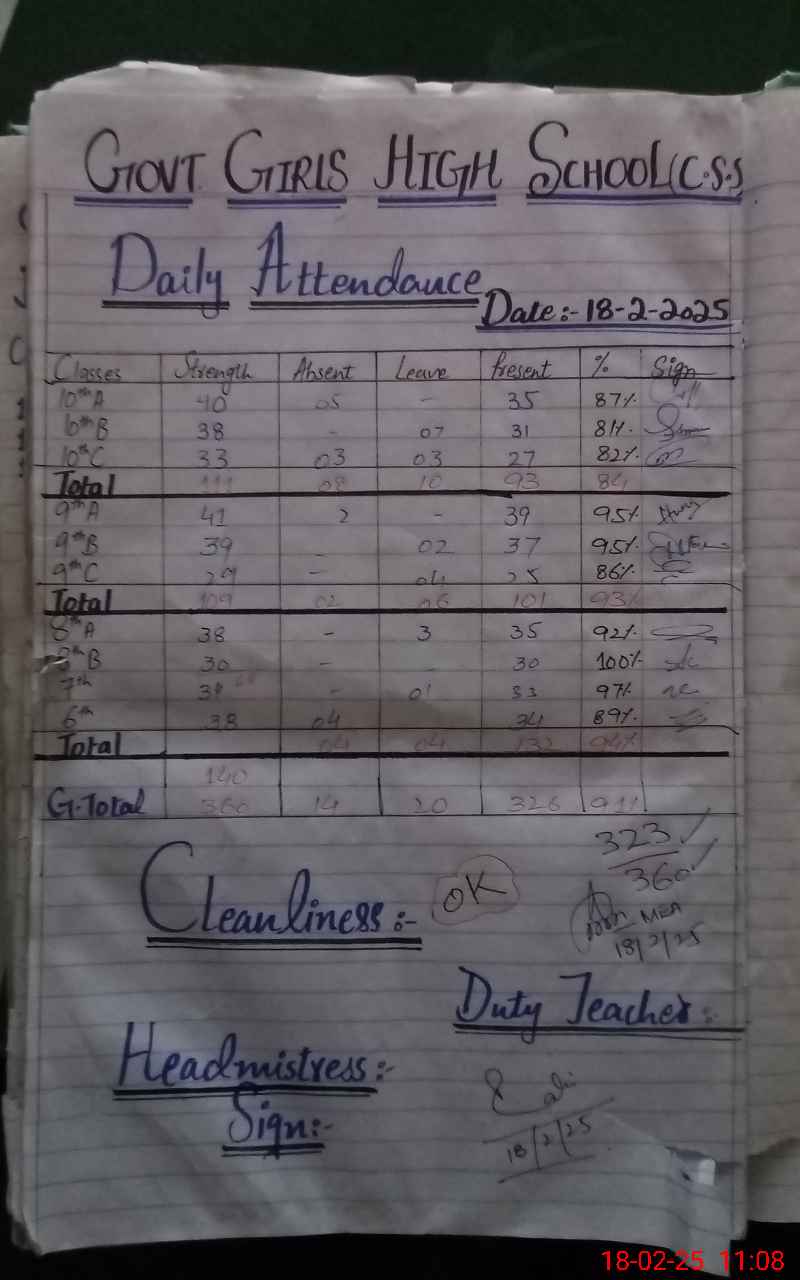 GOVT GIRLS HIGH SCHOOL (C.S.S
Daily Attendance
Date:- 18-2-2025
Classes Strength Absent Leave Present % Sign
10th A 40 05 - 35 87%
10th B 38 - 07 31 81%
10th C 33 03 03 27 82%
Total 111 08 10 93 84
9th A 41 2 - 39 95%
9th B 39 - 02 37 95%
9th C 29 - 04 25 86%
Total 109 02 06 101 93%
8th A 38 - 3 35 92%
8th B 30 - - 30 100%
7th - 01 33 97%
6th 38 04 34 89%
Total 04 04 132 94%
140
G.Total 360 14 20 326 91%
323
360
Cleanliness:- OK
MEA
18/2/25
Duty Teacher:-
Headmistress:-
Sign:-
18/2/25
18-02-25 11:08